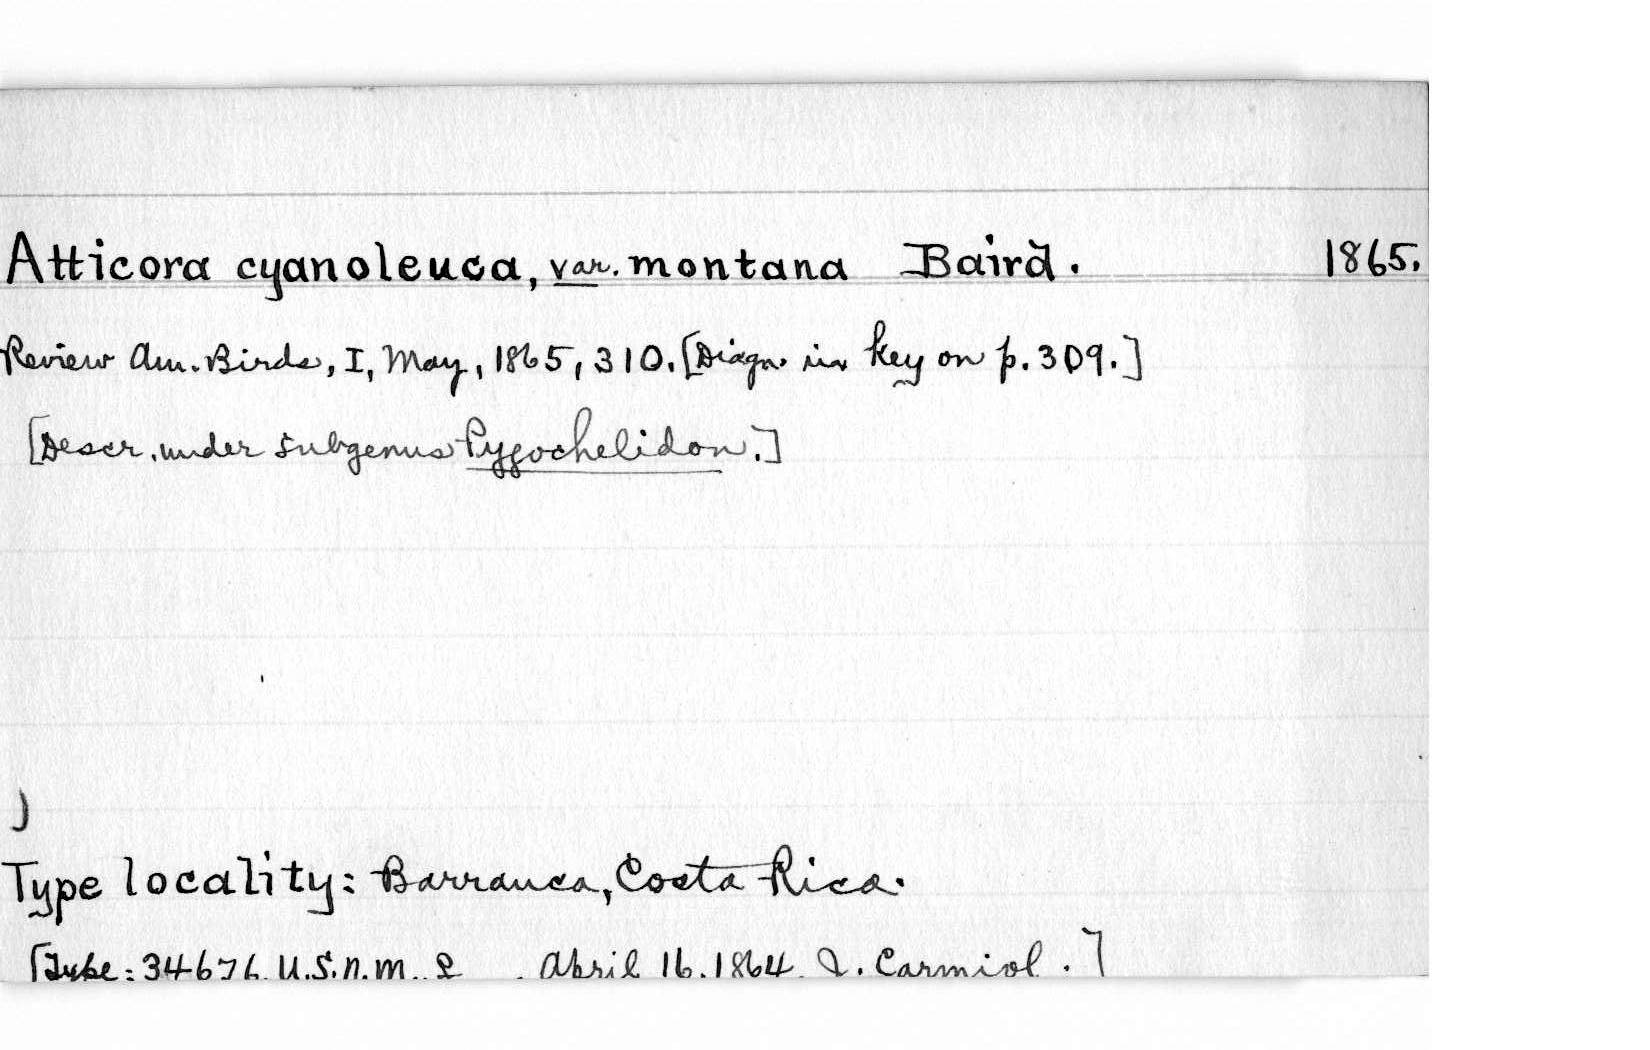 Atticora cyanoleuca, var. montana Baird. 1865.
Review Am. Birds, I, May, 1865, 310. [Diagn. in key on p. 309.]
[Descr. under subgenus Pygochelidon.]
)
Type locality: Barranca, Costa Rica.
[Type: 34676 U.S.N.M. ♀ . April 16. 1864. J. Carmiol.]